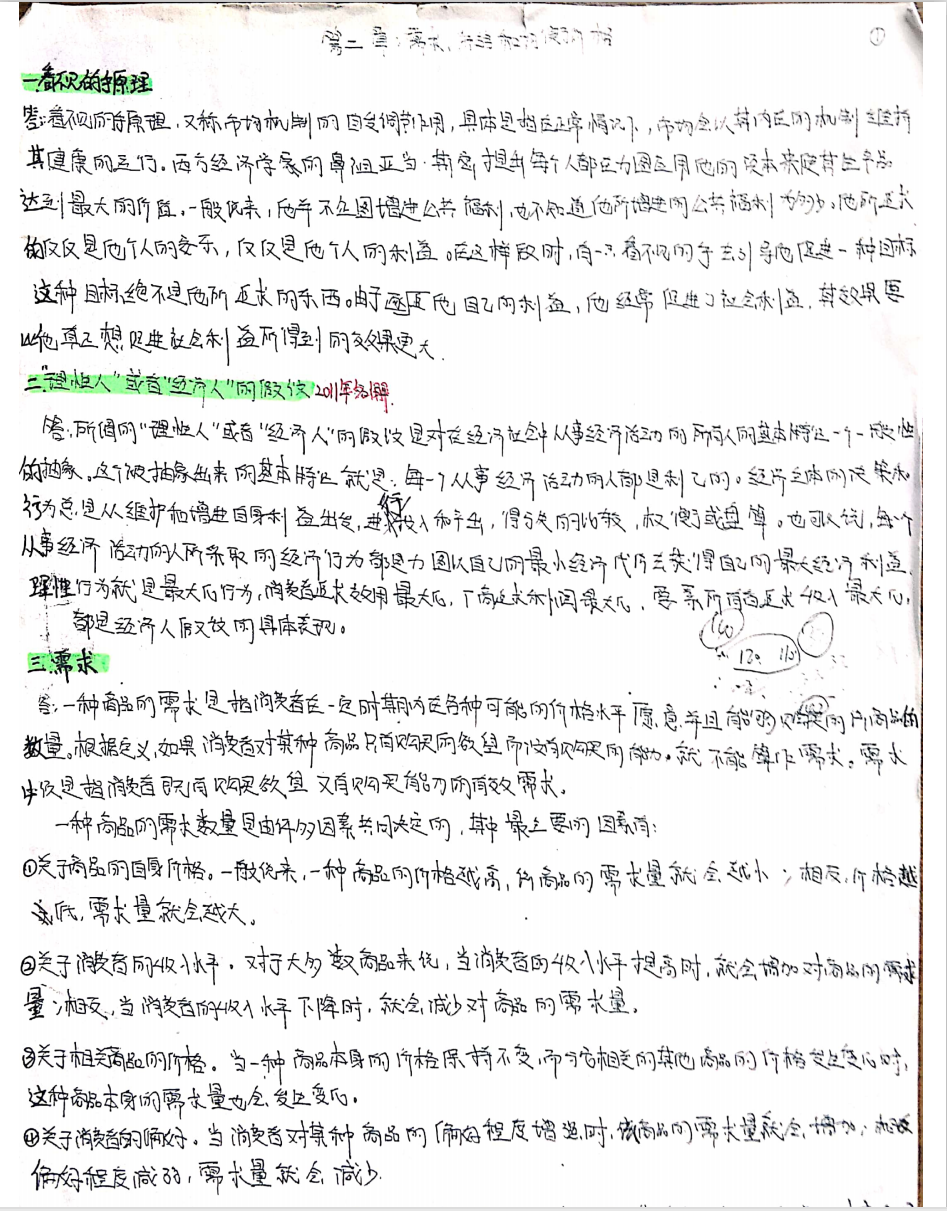 第二章:需求、供给和均衡价格 ①
一.看不见的手原理
答:看不见的手原理,又称市场机制的自发调节作用,具体是指在正常情况下,市场会以其内在的机制维持
其健康的运行。西方经济学家的鼻祖亚当·斯密提出每个人都在力图应用他的资本来使其生产品
达到最大的价值。一般说来,他并不企图增进公共福利,也不知道他所增进的公共福利为多少,他所追求
的仅仅是他个人的安乐,仅仅是他个人的利益。在这样做时,有一只看不见的手去引导他促进一种目标
这种目标绝不是他所追求的东西。由于追逐他自己的利益,他经常促进了社会利益,其效果要
比他真正想促进社会利益所得到的效果更大.
二."理性人"或者"经济人"的假设 2011年名解.
答:所谓的"理性人"或者"经济人"的假设是对在经济社会中从事经济活动的所有人的基本特征一个一般性
的抽象。这个被抽象出来的基本特征就是:每一个从事经济活动的人都是利己的。经济主体的决策和
行为总是从维护和增进自身利益出发,进行投入和产出,得失的比较,权衡或盘算。也可以说,每个
从事经济活动的人所采取的经济行为都是力图以自己的最小经济代价去获得自己的最大经济利益.
理性行为就是最大化行为,消费者追求效用最大化,厂商追求利润最大化,要素所有者追求收入最大化,
都是经济人假设的具体表现。
160
120 110
三.需求
答:一种商品的需求是指消费者在一定时期内在各种可能的价格水平愿意并且能够购买的所商品的
数量。根据定义,如果消费者对某种商品只有购买的欲望而没有购买的能力。就不能算作需求。需求
仅是指消费者既有购买欲望又有购买能力的有效需求。
一种商品的需求数量是由许多因素共同决定的,其中最主要的因素有:
①关于商品的自身价格。一般说来,一种商品的价格越高,所商品的需求量就会越小;相反,价格越
低,需求量就会越大。
②关于消费者的收入水平。对于大多数商品来说,当消费者的收入水平提高时,就会增加对商品的需求
量;相反,当消费者的收入水平下降时,就会减少对商品的需求量。
③关于相关商品的价格。当一种商品本身的价格保持不变,而与它相关的其他商品的价格发生变化时,
这种商品本身的需求量也会发生变化。
④关于消费者的偏好。当消费者对某种商品的偏好程度增强时,该商品的需求量就会增加;相反
偏好程度减弱,需求量就会减少.